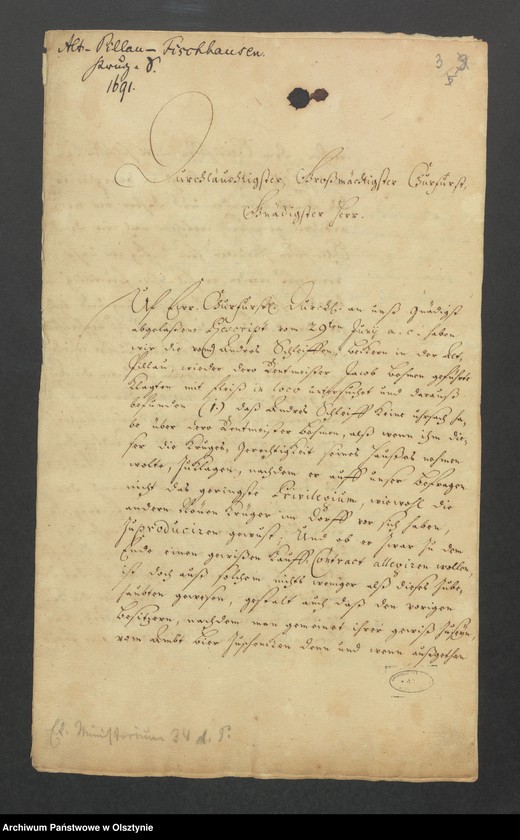 Alt-Pillau-Fischhausen.
Krug. S.
1691.
3
Durchlauchtigster, Großmächtigster Churfürst,
Gnädigster Herr.
Uf Ewr. Churfürstl. Durchl. an unß Gnädigst
abgelaßene Rescript vom 29ten Junij a. c. haben
wir die von Andres Schleiffen, Beckern in der Alt
Pillau, wieder dero Rentmeister Jacob Bohmen geführte
Klagten mit fleiß in loco untersuchet und darauß
befunden (1.) daß Andres Schleiff keine uhrsach ha-
be über dero Rentmeister Bohmen, alß wenn ihm die-
ser die Kruges-Gerechtigkeit seines Haußes nehmen
wolte, zuklagen, nachdem er auff unser befragen
nicht das geringste Privilegium, wiewohl die
andern Krüger im Dorff vor sich haben,
zuproduciren gewust; Und ob er zwar zu dem
Ende einen gewißen Kauff-Contract allegiren wollen,
ist doch auß solchem nichts weniger alß dieses zube-
haubten gewesen, gestalt auch daß den vorigen
Besitzern, nachdem man gemeinet ihrer gewiß zuseyn,
vom Ambt bier zuschencken denn und wenn außgethan
Et. Ministerium 34 d. S.
Archiwum Państwowe w Olsztynie